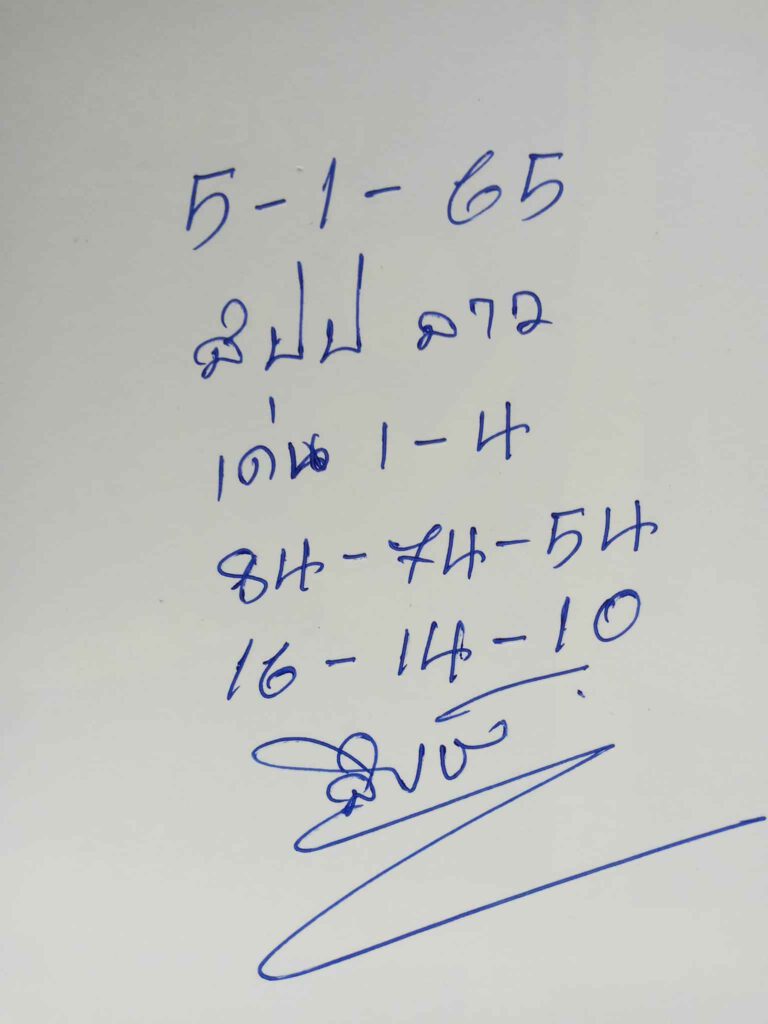 5-1-65
สปป ลาว
เด่น 1-4
84-74-54
16-14-10